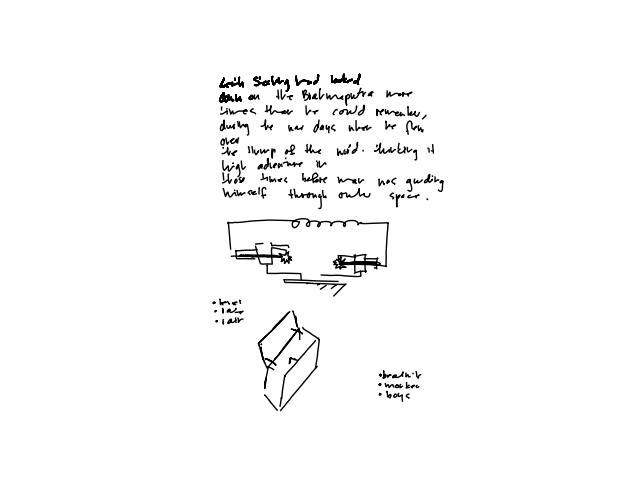 Keith Sterling had looked
down on the Brahmaputra more
times than he could remember,
during the war days when he flew
over
the Hump of the world. thinking it
high adventure in
those times before man was guiding
himself through outer space.
• level
• last
• boys